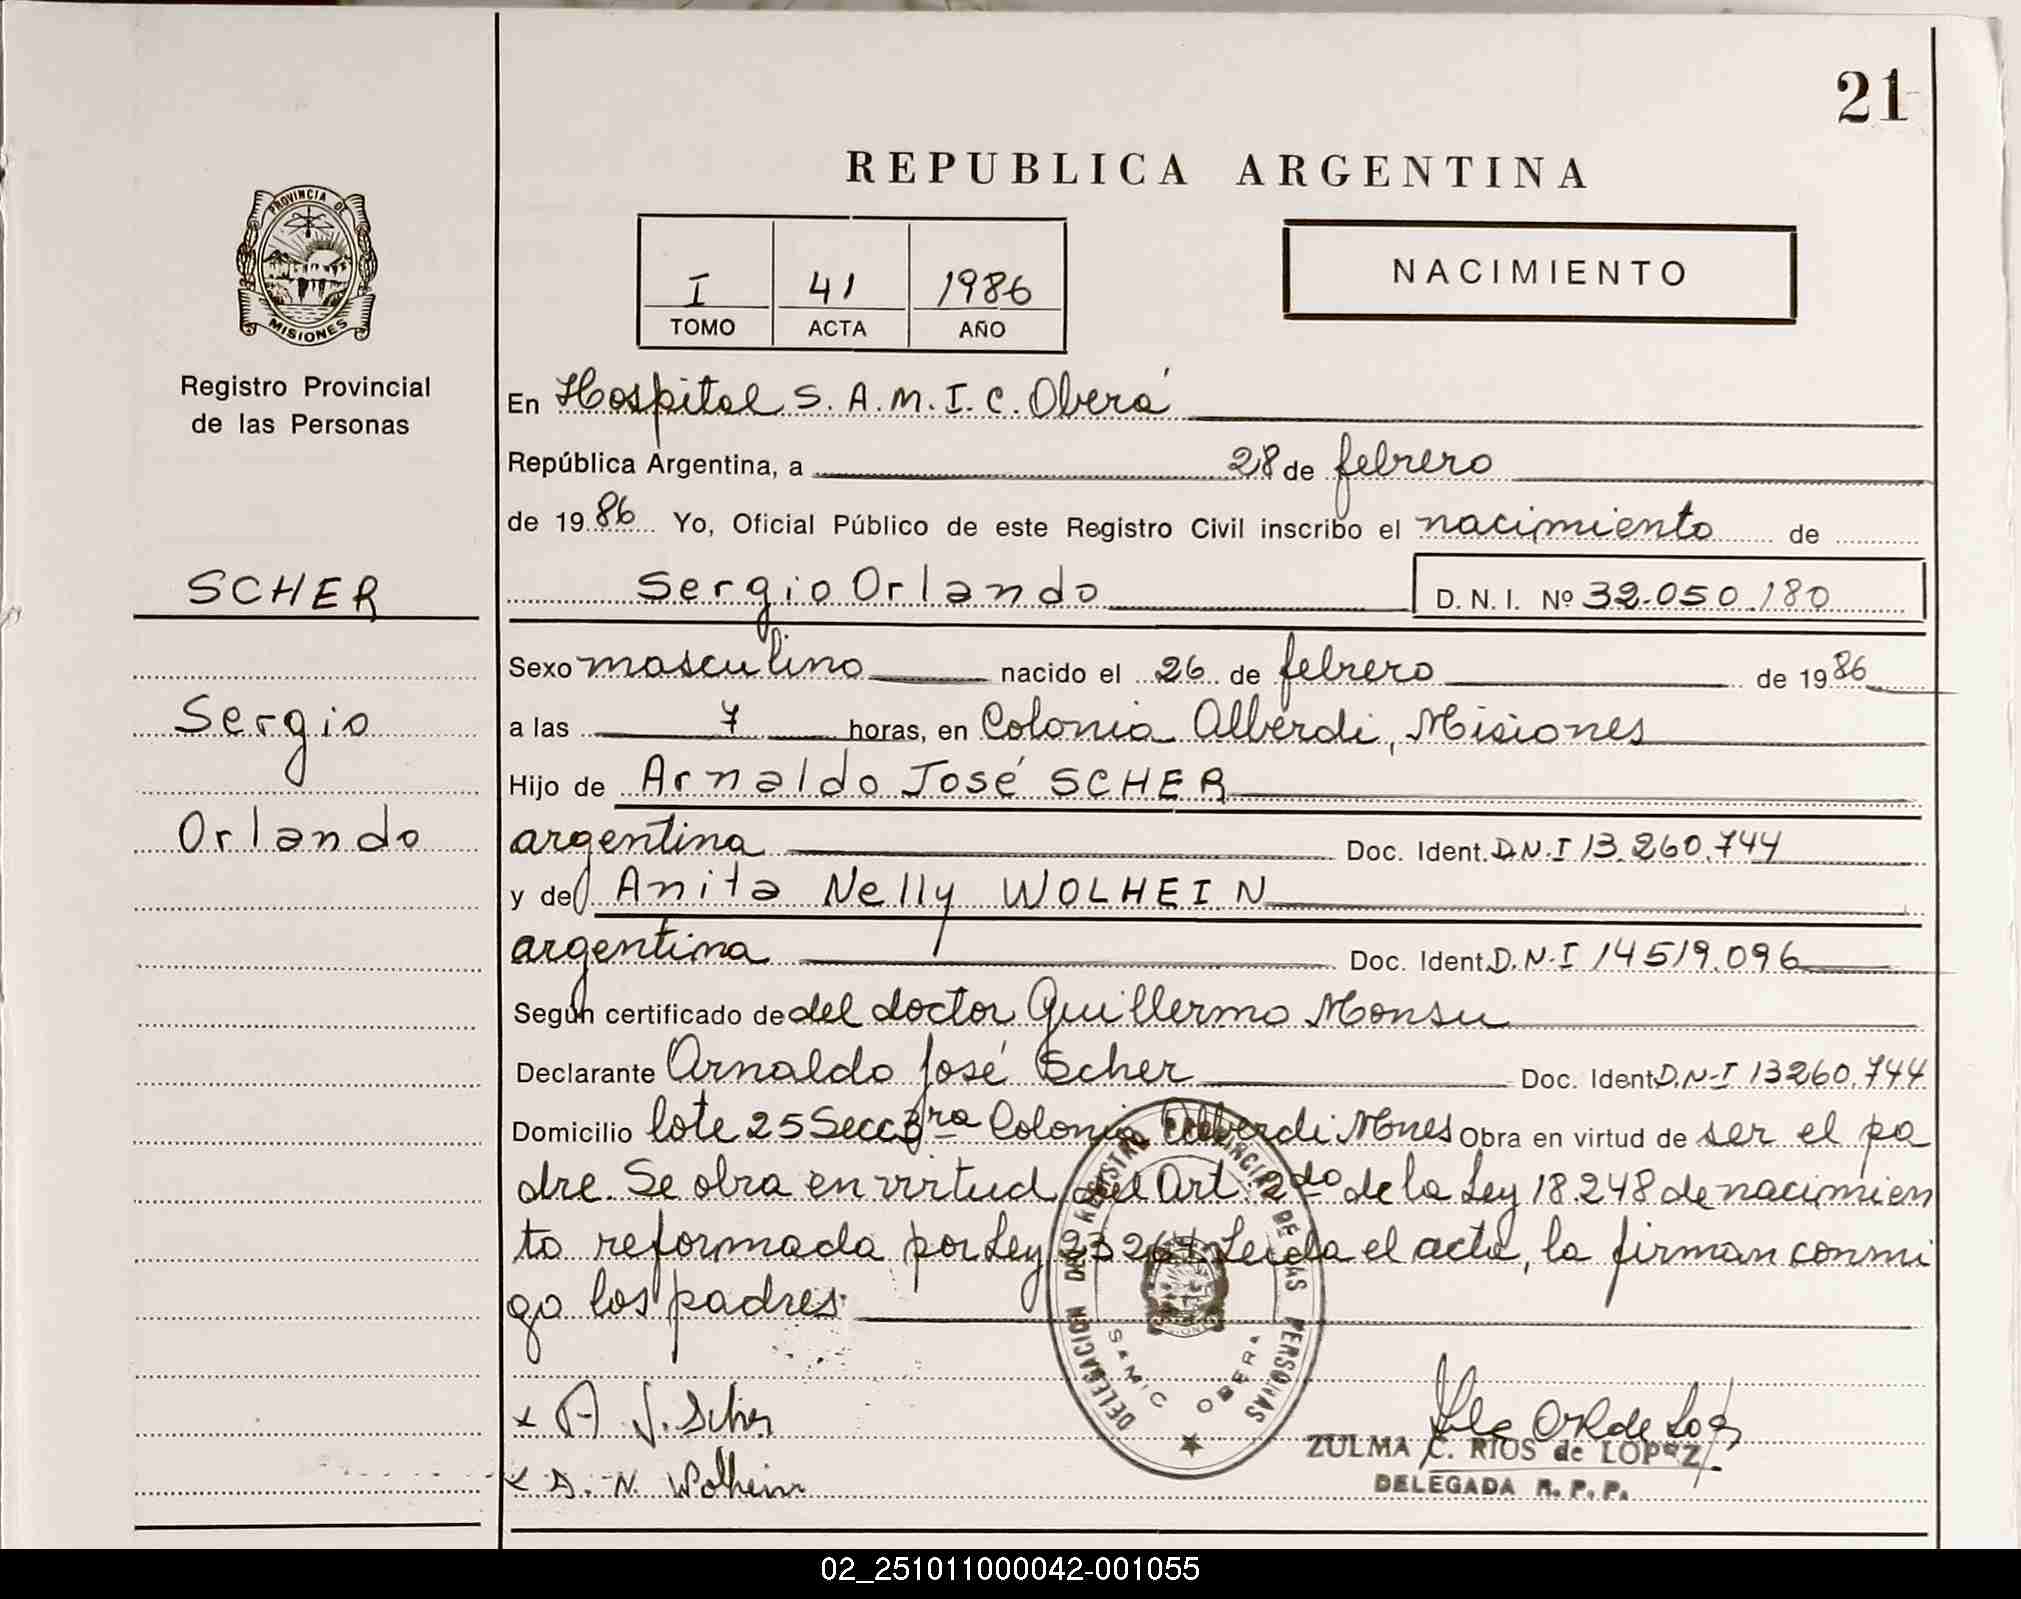 21
REPUBLICA ARGENTINA
PROVINCIA DE
MISIONES
Registro Provincial
de las Personas
I 41 1986
TOMO ACTA AÑO
NACIMIENTO
En Hospital S.A.M.I.C. Oberá
República Argentina, a 28 de febrero
de 1986 Yo, Oficial Público de este Registro Civil inscribo el nacimiento de
Sergio Orlando D.N.I. Nº 32.050.180
SCHER
Sergio
Orlando
Sexo masculino nacido el 26 de febrero de 1986
a las 7 horas, en Colonia Alberdi, Misiones
Hijo de Arnaldo José SCHER
argentina Doc. Ident. D.N.I 13.260.744
y de Anita Nelly WOLHEIN
argentina Doc. Ident. D.N.I 14519.096
Según certificado de del doctor Guillermo Monsu
Declarante Arnaldo José Scher Doc. Ident. D.N.I 13260.744
Domicilio lote 25 Secc 3ra Colonia Alberdi Mnes Obra en virtud de ser el pa
dre. Se obra en virtud del Art. 2do de la Ley 18.248 de nacimien
to reformada por Ley 23264 Leida el acta, la firman conmi
go los padres.
DELEGACION DEL REGISTRO PROVINCIAL DE LAS PERSONAS
SAMIC OBERA
x A J. Scher
x A. N. Wolhein
ZULMA C. RIOS de LOPEZ
DELEGADA R.P.P.
02_251011000042-001055